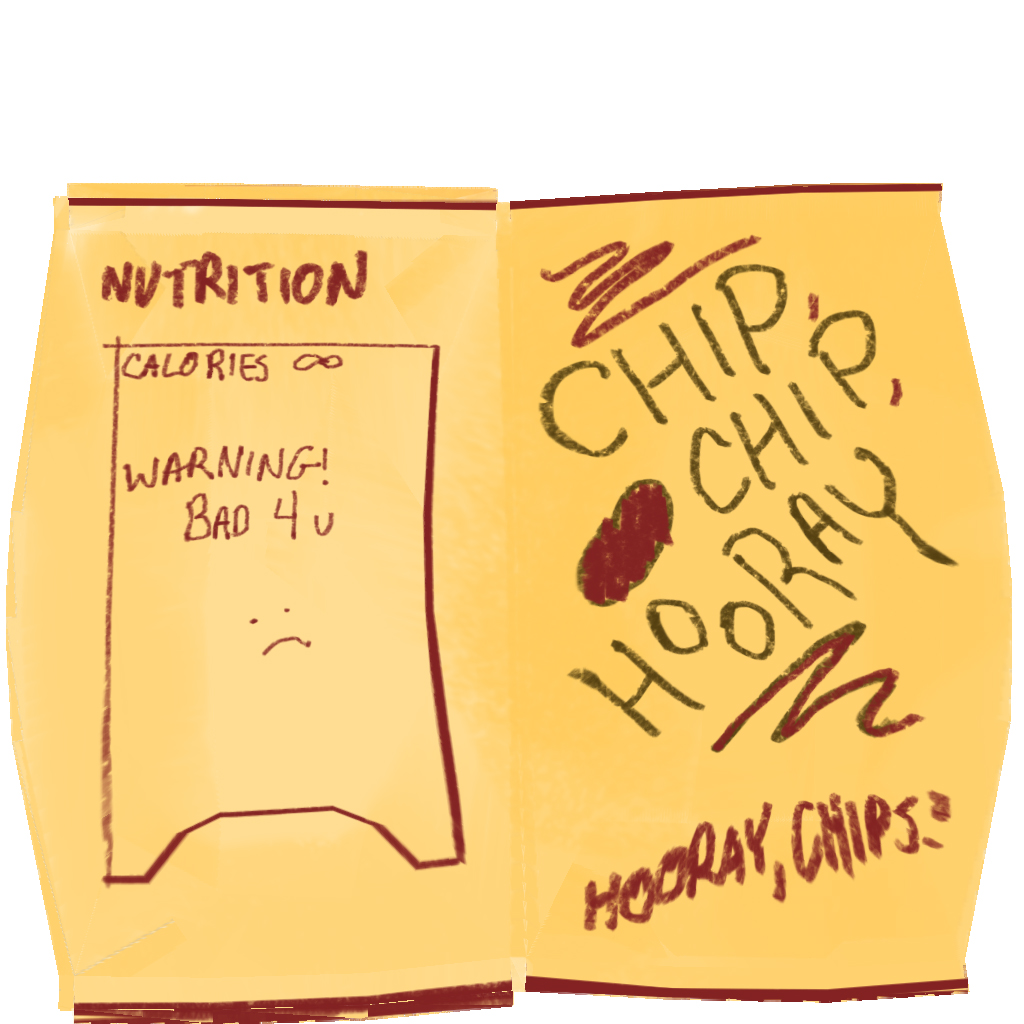 NUTRITION
CALORIES ∞
WARNING!
BAD 4 U
CHIP,
CHIP,
HOORAY
HOORAY, CHIPS!